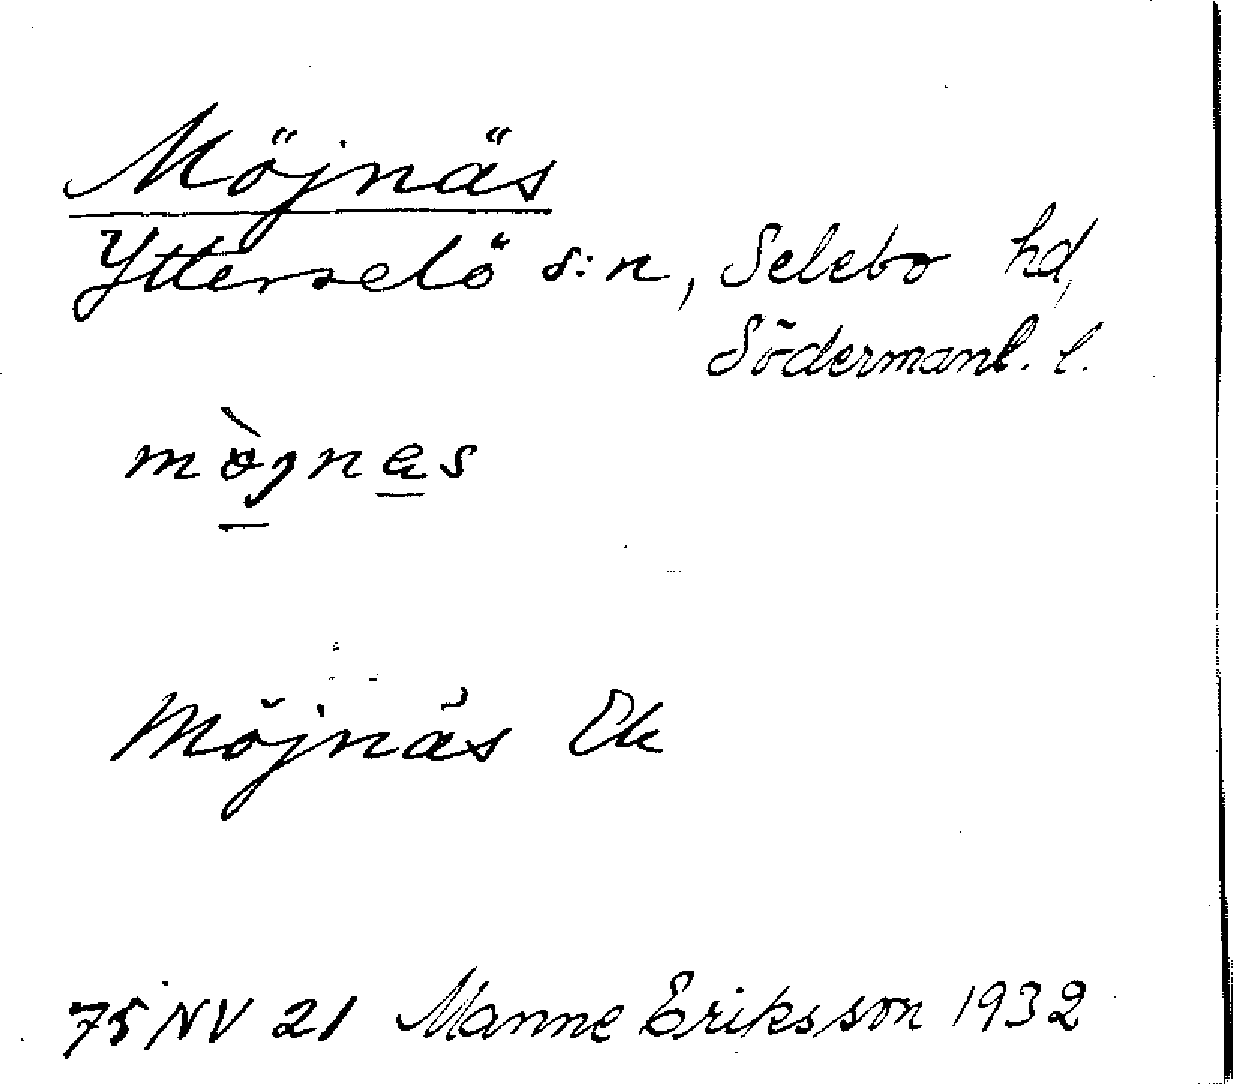 Möjnäs
Ytterselö s:n, Selebo hd,
Södermanl. l.
Möjnäs Ek
75 NV 21 Manne Eriksson 1932